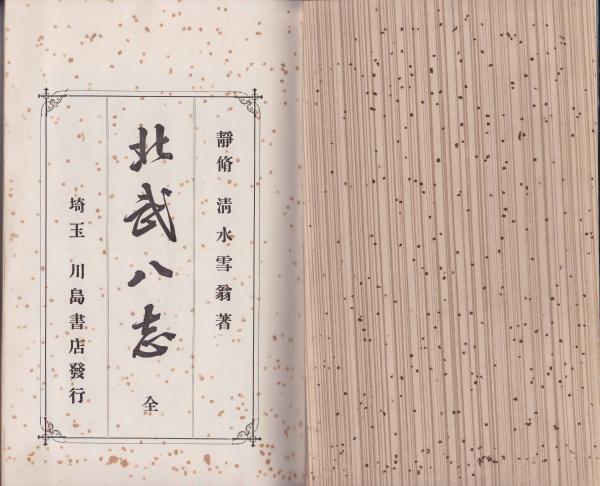 靜脩 清水雪翁著
北武八志 全
埼玉 川島書店發行